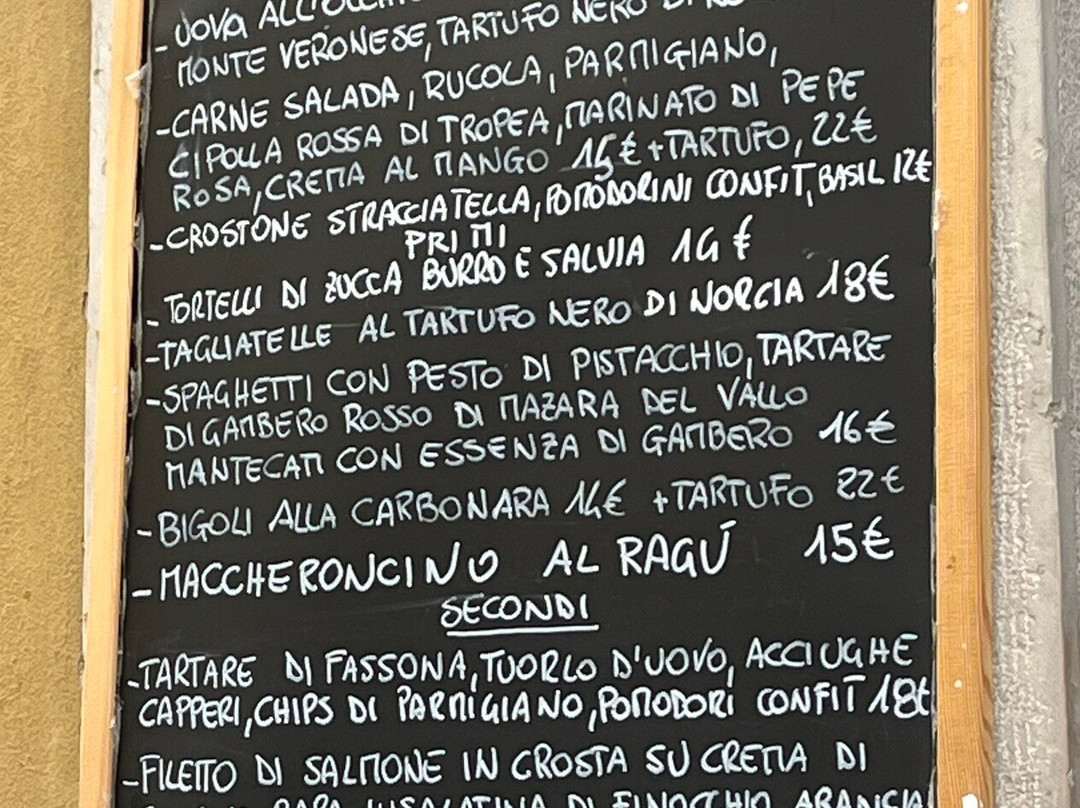 - UOVA ALL'OCCHIO
MONTE VERONESE, TARTUFO NERO DI
- CARNE SALADA, RUCOLA, PARMIGIANO,
CIPOLLA ROSSA DI TROPEA, MARINATO DI PEPE
ROSA, CREMA AL MANGO € + TARTUFO, 22€
- CROSTONE STRACCIATELLA, POMODORINI CONFIT, BASIL 12€
PRIMI
- TORTELLI DI ZUCCA BURRO E SALVIA 14 €
- TAGLIATELLE AL TARTUFO NERO DI NORCIA 18€
- SPAGHETTI CON PESTO DI PISTACCHIO, TARTARE
DI GAMBERO ROSSO DI MAZARA DEL VALLO
MANTECATI CON ESSENZA DI GAMBERO 16€
- BIGOLI ALLA CARBONARA 14€ + TARTUFO 22€
- MACCHERONCINO AL RAGÚ 15€
SECONDI
- TARTARE DI FASSONA, TUORLO D'UOVO, ACCIUGHE
CAPPERI, CHIPS DI PARMIGIANO, POMODORI CONFIT 18€
- FILETTO DI SALMONE IN CROSTA SU CREMA DI
INSALATINA DI FINOCCHIO ARANCIA